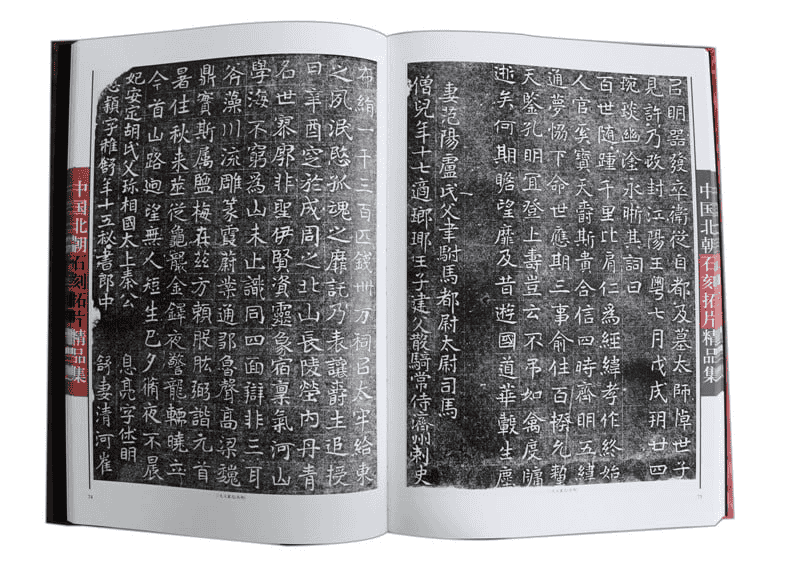 布絹一千三百匹錢卅万祠㠯太牢給東
之夙泯愍孤魂之靡託乃表讓爵土追授
日辛酉窆於成周之北山長陵塋内丹青
名世寥廓非聖伊賢資靈象宿稟氣河山
學海不窮為山未止識同四面辯非三耳
谷藻川流雕篆霞蔚業通鄒魯聲高梁魏
鼎實斯属鹽梅在兹方賴股肱弼諧元首
暑往秋来從龜襲金鐸夜警龍轜曉立
今首山路逈望無人短生已夕脩夜不晨
妃安定胡氏父珎相國太上秦公 息亮字仕明
息頴字稚舒年十五祕書郎中 舒妻清河崔
中国北朝石刻拓片精品集
74
㠯明器發卒衛從自都及墓太師悼世子
見許乃改封江陽王粤七月戊戌玥廿四
琬琰幽塗永晣其詞曰
百世随踵千里比肩仁為經緯孝作終始
人官矣寶天爵斯貴合信四時齊明五緯
通夢協下命世應期三事俞往百揆允
天鋻孔明冝登上壽豈云不弔如禽度牖
逝矣何期瞻望靡及昔遊國道華轂生塵
妻范陽盧氏父聿駙馬都尉太尉司馬
僧兒年十七適瑯瑘王子建父散騎常侍濟州刺史
中国北朝石刻拓片精品集
75